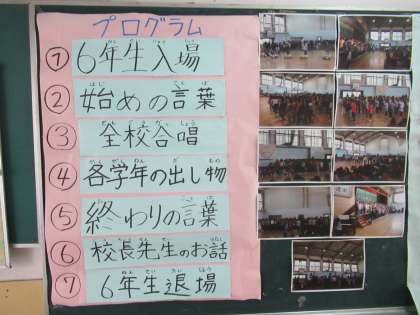 プログラム
① 6年生入場
② 始めの言葉
③ 全校合唱
④ 各学年の出し物
⑤ 終わりの言葉
⑥ 校長先生のお話
⑦ 6年生退場